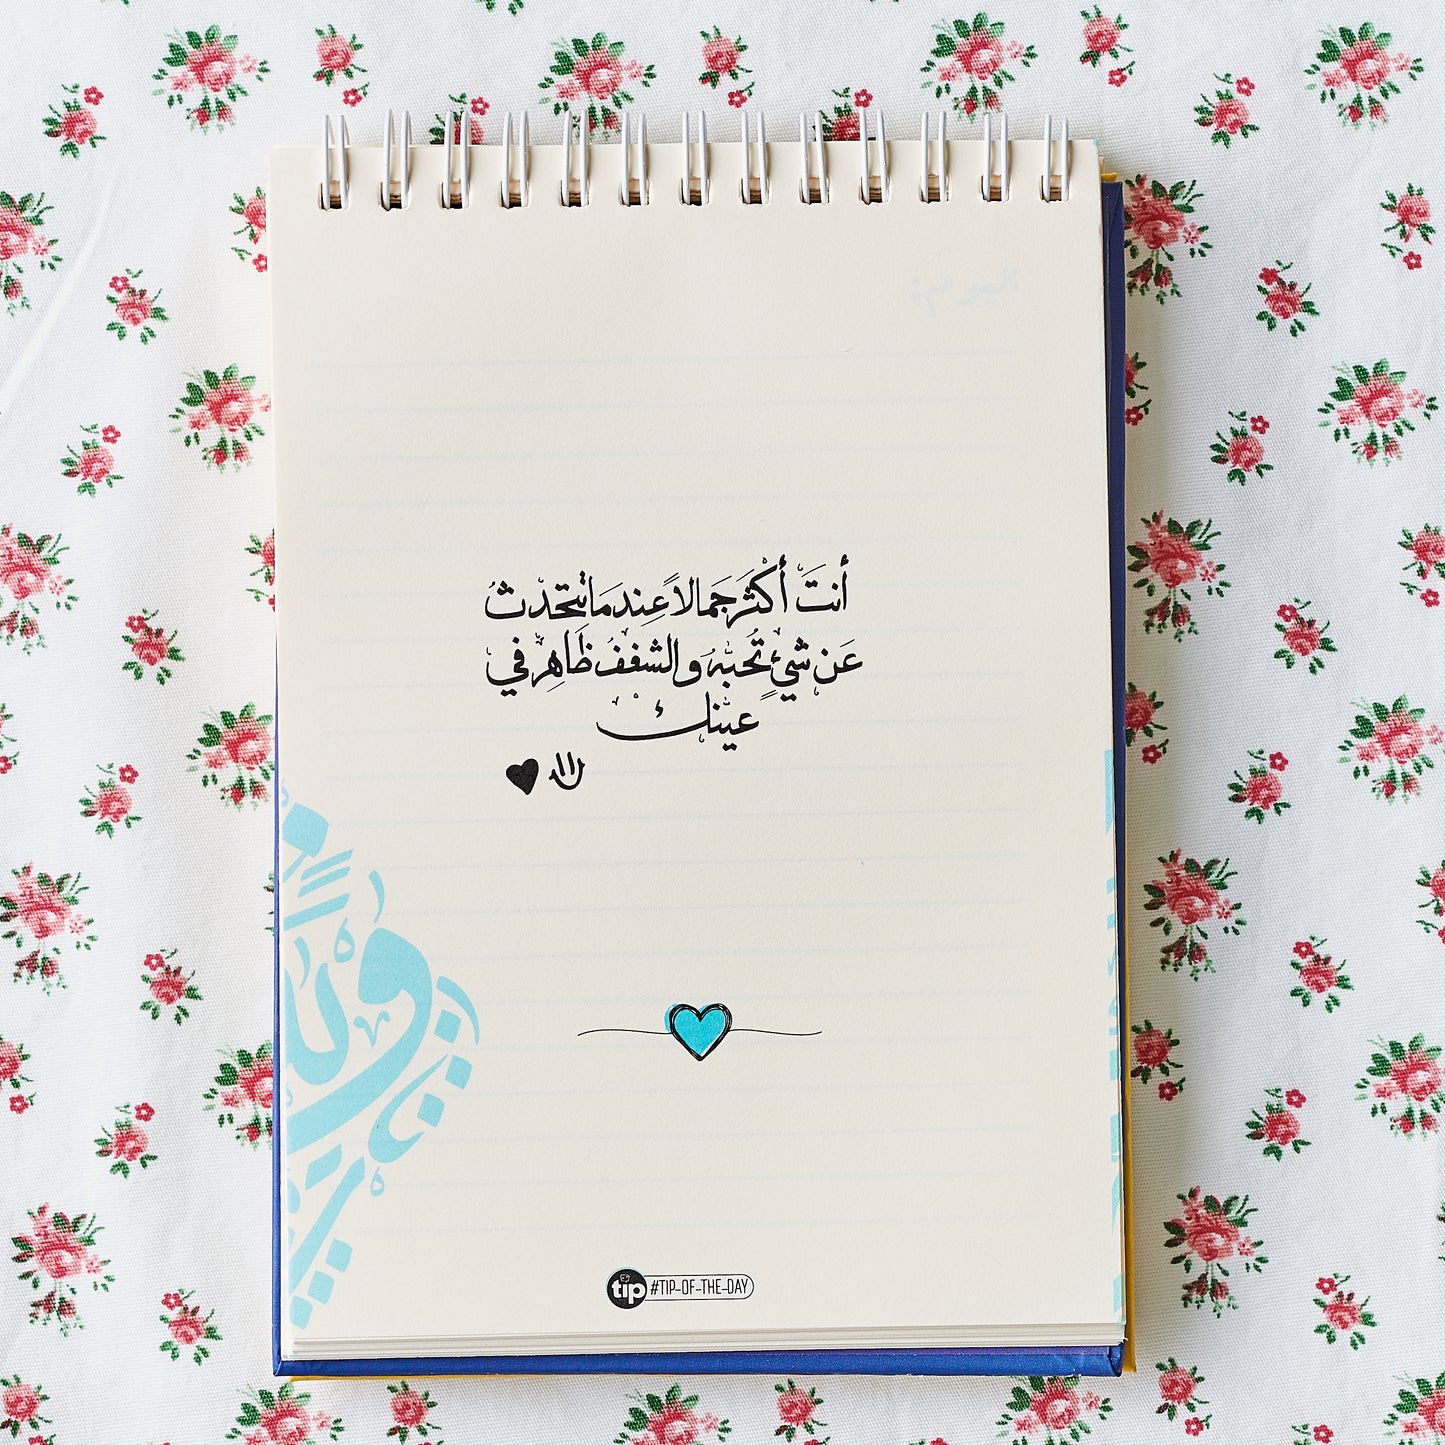 أنتَ أكْثَر جَمالاً عِندمَا تتحَدثُ
عَن شيءٍ تُحبهُ والشغفُ ظَاهِرٌ في
عينك
tip #TIP-OF-THE-DAY